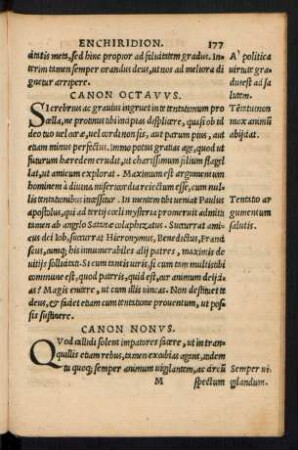 ENCHIRIDION. 177
ãtitis metã, sed hinc propior ad salutatem gradus. In-
terim tamen semper orandus deus, ut nos ad meliora di
gnetur arripere.
A' politica
uirtute gra-
dus est ad sa
lutem.
CANON OCTAVVS.
SI crebrius ac grauius ingruet in te tentationum pro
cella, ne protinus tibi incipias displicere, quasi ob id
deo tuo uel curæ, uel cordi non sis, aut parum pius, aut
etiam minus perfectus. Immo potius gratias age, quod ut
futurum hæredem erudit, ut charissimum filium flagel
lat, ut amicum explorat. Maximum est argumentum
hominem à diuina misericordia reiectum esse, cum nul-
lis tentationibus incessitur. In mentem tibi ueniat Paulus
apostolus, qui ad tertij cœli mysteria promeruit admitti
tamen ab angelo Satanæ colaphizatus. Succurrat ami-
cus dei Iob, succurrat Hieronymus, Benedictus, Franci
scus, cumq; his innumerabiles alij patres, maximis de
uitijs sollicitati. Si cum tantis uiris, si cum tam multis tibi
commune est, quod pateris, quid est, cur animum deijci
as? Magis enitere, ut cum illis uincas. Non destituet te
deus, & faciet etiam cum tentatione prouentum, ut pos-
sis sustinere.
Tentatio non
mox animũ
abijciat.
Tentatio ar
gumentum
salutis.
CANON NONVS.
QVod callidi solent impatores facere, ut in tran-
quillis etiam rebus, tamen excubias agant, itidem
tu quoq; semper animum uigilantem, ac circũ
Semper ui-
gilandum.
M spectum